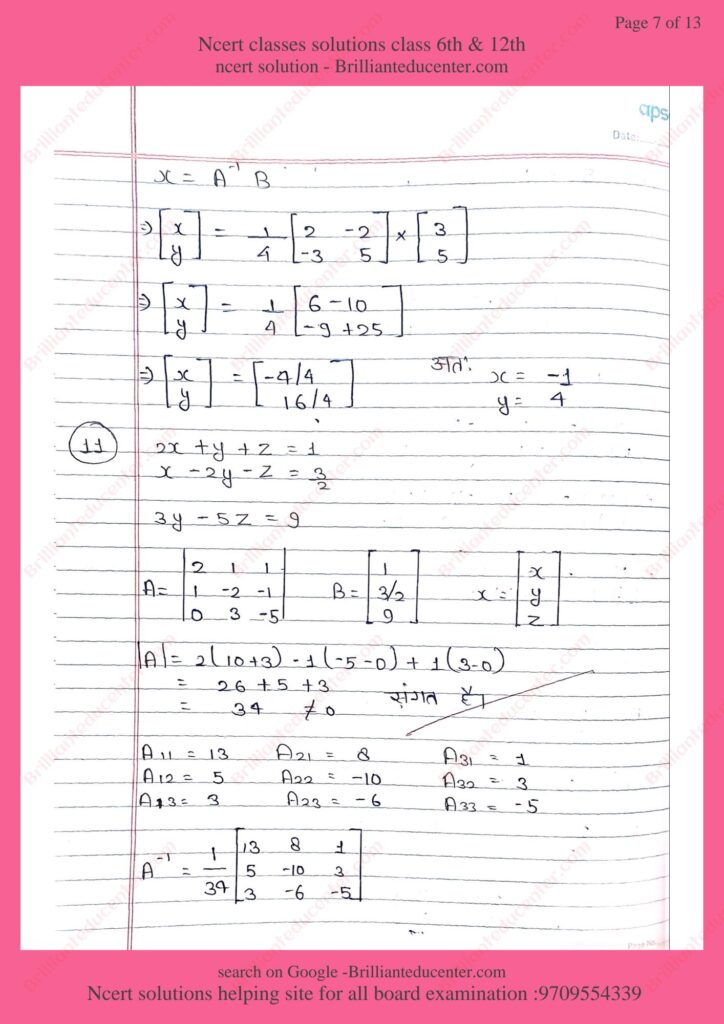 Page 7 of 13
Ncert classes solutions class 6th & 12th
ncert solution - Brillianteducenter.com
aps
Date:
x = A⁻¹ B
⇒ [x y] = 1/4 [2 -2 -3 5] × [3 5]
⇒ [x y] = 1/4 [6 - 10 -9 + 25]
⇒ [x y] = [-4/4 16/4] अतः x = -1
y = 4
11 2x + y + z = 1
x - 2y - z = 3/2
3y - 5z = 9
A = |2 1 1 1 -2 -1 0 3 -5| B = [1 3/2 9] x = [x y z]
|A| = 2(10+3) - 1(-5-0) + 1(3-0)
= 26 + 5 + 3
= 34 ≠ 0 संगत है।
A11 = 13 A21 = 8 A31 = 1
A12 = 5 A22 = -10 A32 = 3
A13 = 3 A23 = -6 A33 = -5
A⁻¹ = 1/34 [13 8 1 5 -10 3 3 -6 -5]
Page No.
search on Google -Brillianteducenter.com
Ncert solutions helping site for all board examination :9709554339